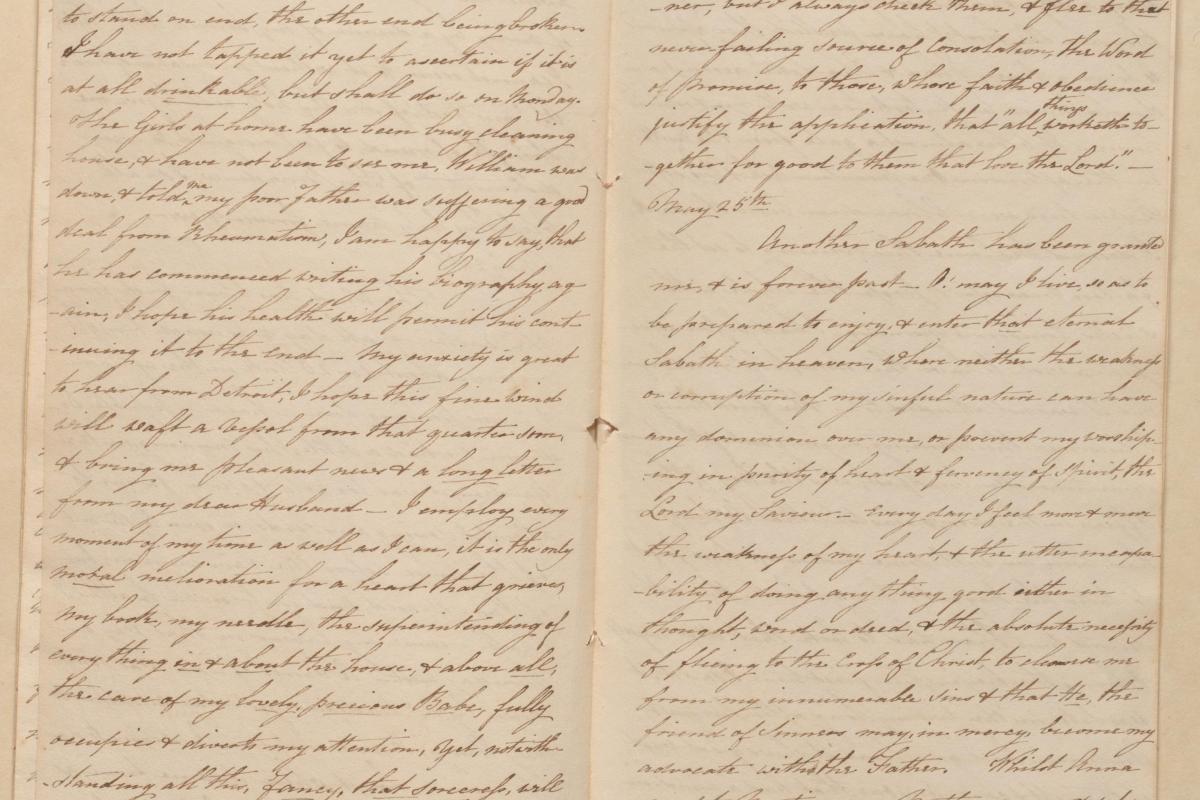 to stand on end, the other end being broken
I have not tapped it yet to ascertain if it is
at all drinkable, but shall do so on Monday.
The Girls at home have been busy cleaning
house, & have not been to see me, William was
down, & told me my poor Father was suffering a good
deal from Rheumatism, I am happy to say, that
he has commenced writing his Biography, ag
-ain, I hope his health will permit his cont
-inuing it to the end — My anxiety is great
to hear from Detroit, I hope this fine wind
will waft a Vessel from that quarter soon,
& bring me pleasant news & a long letter
from my dear Husband — I employ every
moment of my time as well as I can, it is the only
moral melioration for a heart that grieves,
My book, my needle, the superintending of
every thing in & about the house, & above all,
the care of my lovely, precious Babe, fully
occupies & diverts my attention, Yet, notwith
standing all this, Fancy, that sorceress, will
-ner, but I always check them, & flee to that
never failing source of Consolation, the Word
of Promise, to those, whose faith & obedience
justify the application, that "all things worketh to-
-gether for good to them that love the Lord." —
May 25th
Another Sabath has been granted
me, & is forever past — O! may I live, so as to
be prepared to enjoy, & enter that eternal
Sabath in heaven, where neither the weakness
or corruption of my sinful nature can have
any dominion over me, or prevent my worship-
-ing in purity of heart & fervency of Spirit, the
Lord my Saviour. — Every day I feel more & more
the weakness of my heart, & the utter incapa-
-bility of doing any thing good either in
thought, word or deed, & the absolute necessity
of fleeing to the Cross of Christ, to cleanse me
from my innumerable sins & that He, the
friend of Sinners may, in mercy, become my
advocate with the Father. Whilst Anna